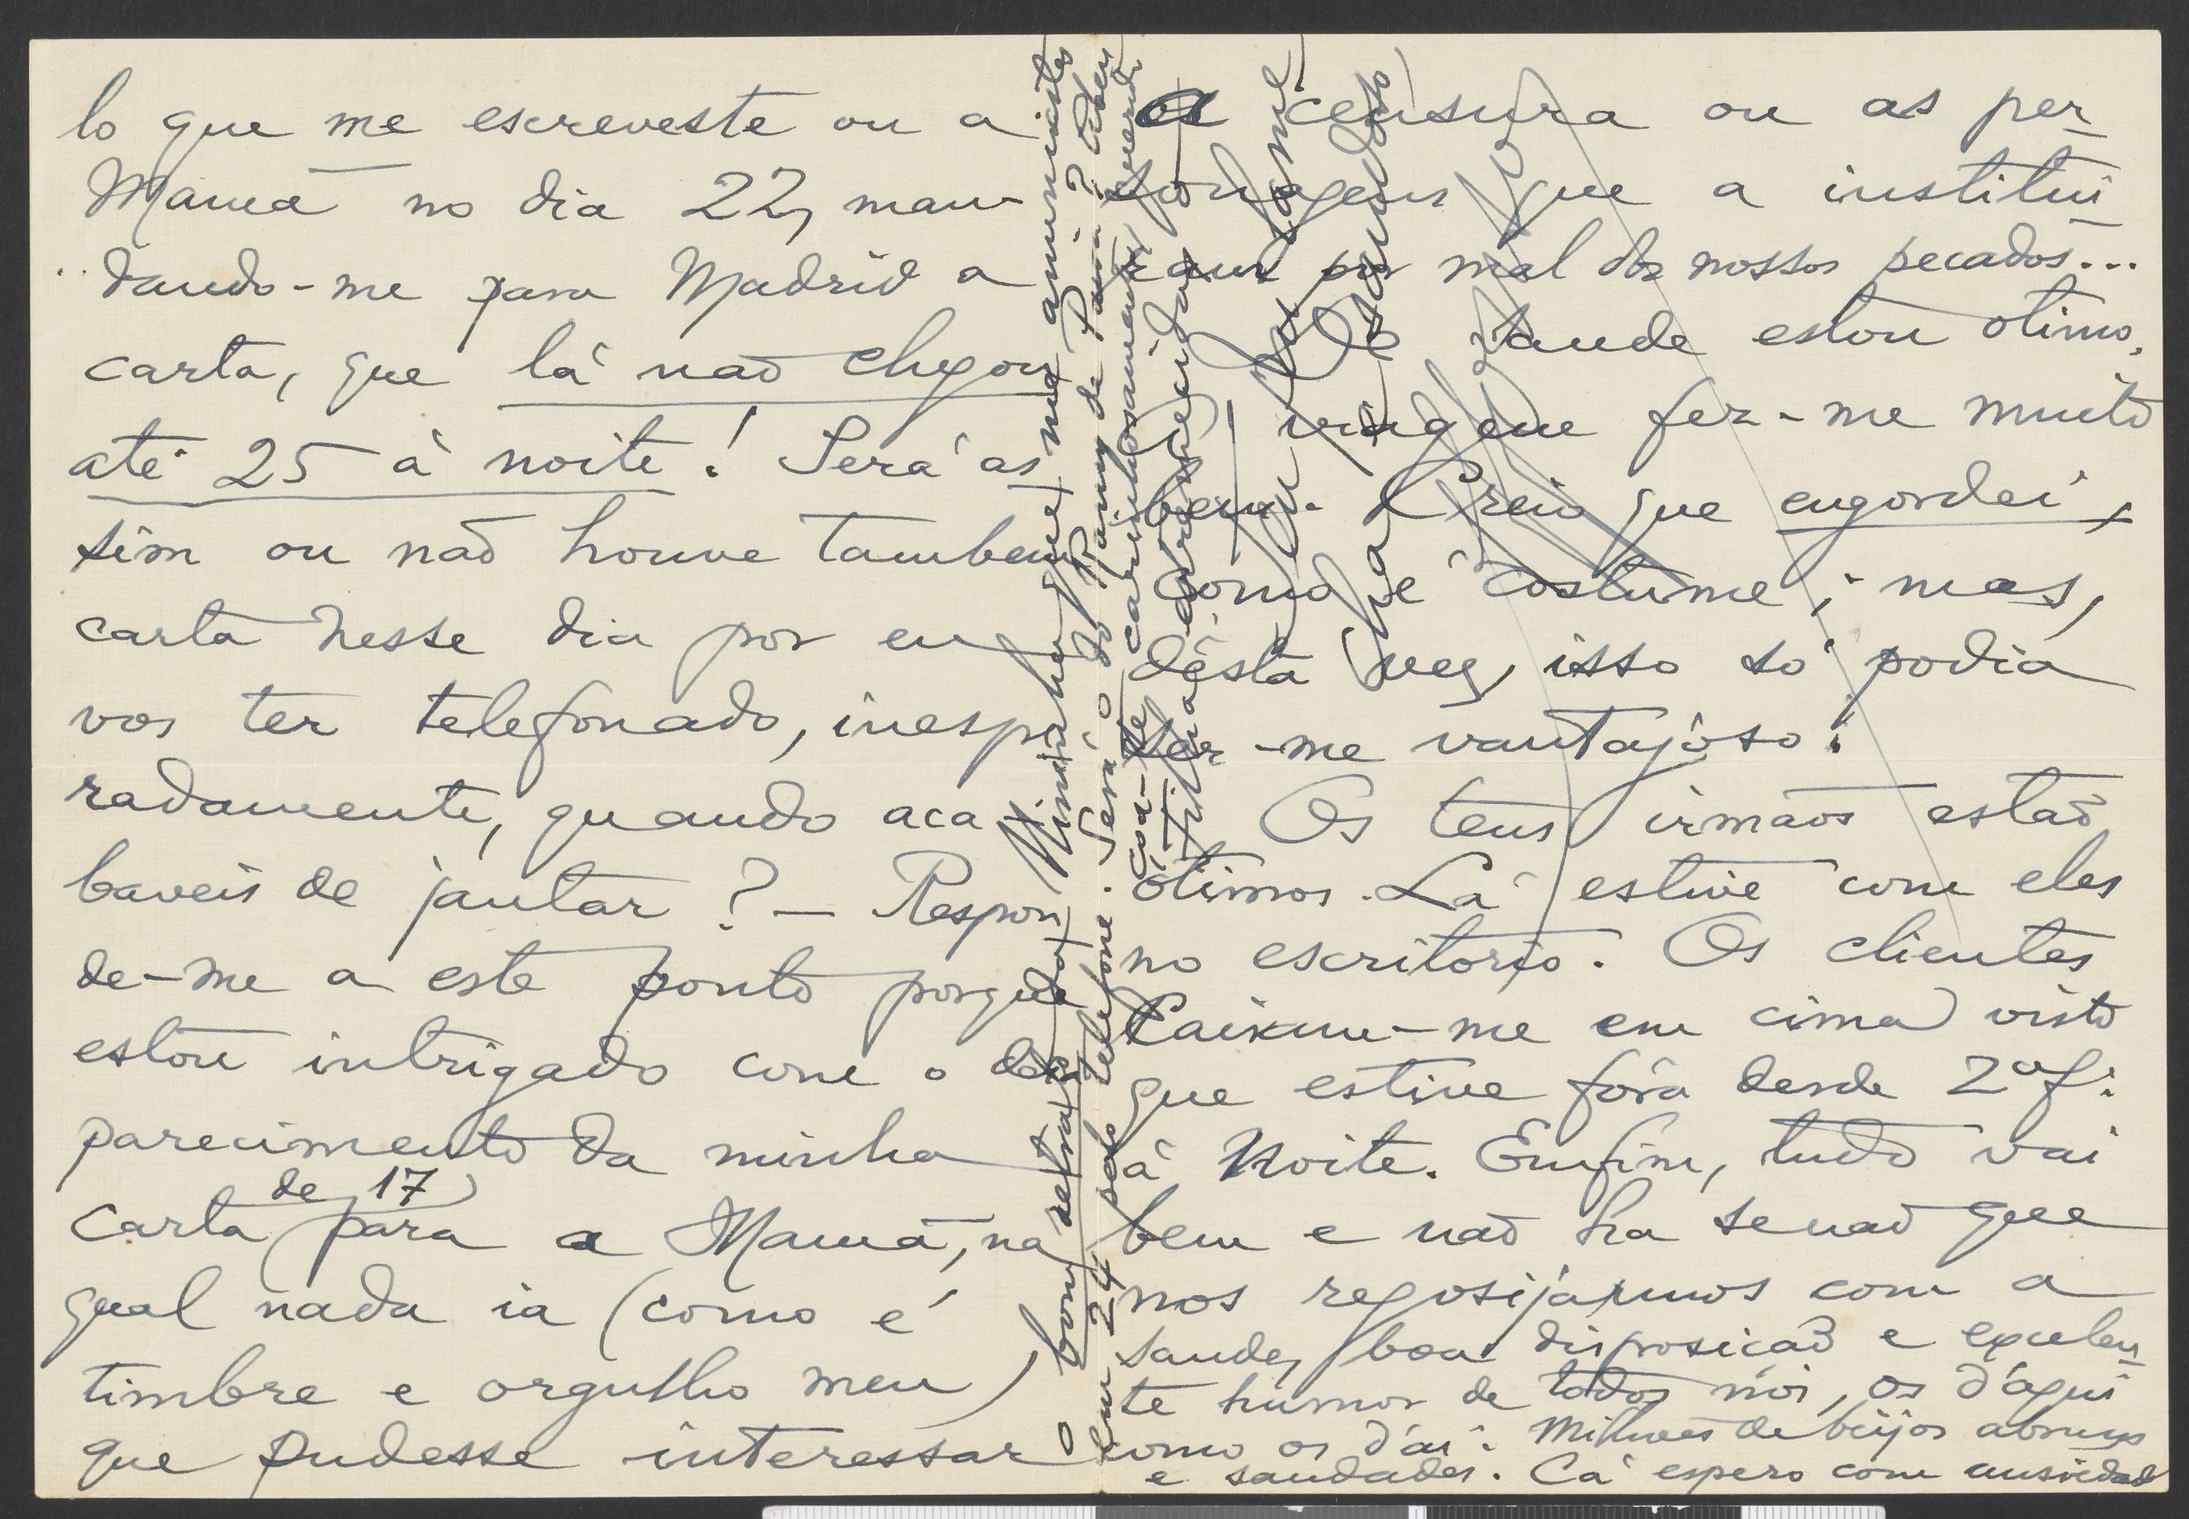 lo que me escreveste ou a
Mamã no dia 22, man-
dando-me para Madrid a
carta, que lá não chegou
até 25 à noite! Será as
sim ou não houve tambem
carta nesse dia por eu
vos ter telefonado, inespe
radamente, quando aca
baveis de jantar? — Respon
de-me a este ponto porque
estou intrigado com o desa
parecimento da minha
carta de 17 para a Mamã, na
qual nada ia (como é
timbre e orgulho meu)
que pudesse interessar
a censura ou as per
sonagens que a institui
ram por mal dos nossos pecados...
De saude estou otimo.
A viagem fez-me muito
bem. Creio que engordei,
como é costume; mas,
désta vez, isso só podia
ser-me vantajôso!
Os teus irmãos estão
ótimos. Lá estive com eles
no escritorio. Os clientes
caíram-me em cima visto
que estive fóra desde 2ª f.
á noite. Emfim, tudo vai
bem e não ha senão que
nos regosijarmos com a
saude, boa disposicão e excelen
te humor de todos nós, os d'aqui
como os d'aí. Milhões de beijos abraços
e saudades. Cá espero com ansiedade
o bom retrato do Miminho que me anunciastes
em 24 pelo telefone. Será o do Ramy de Pavia? Adeus
querido
carinhosamente